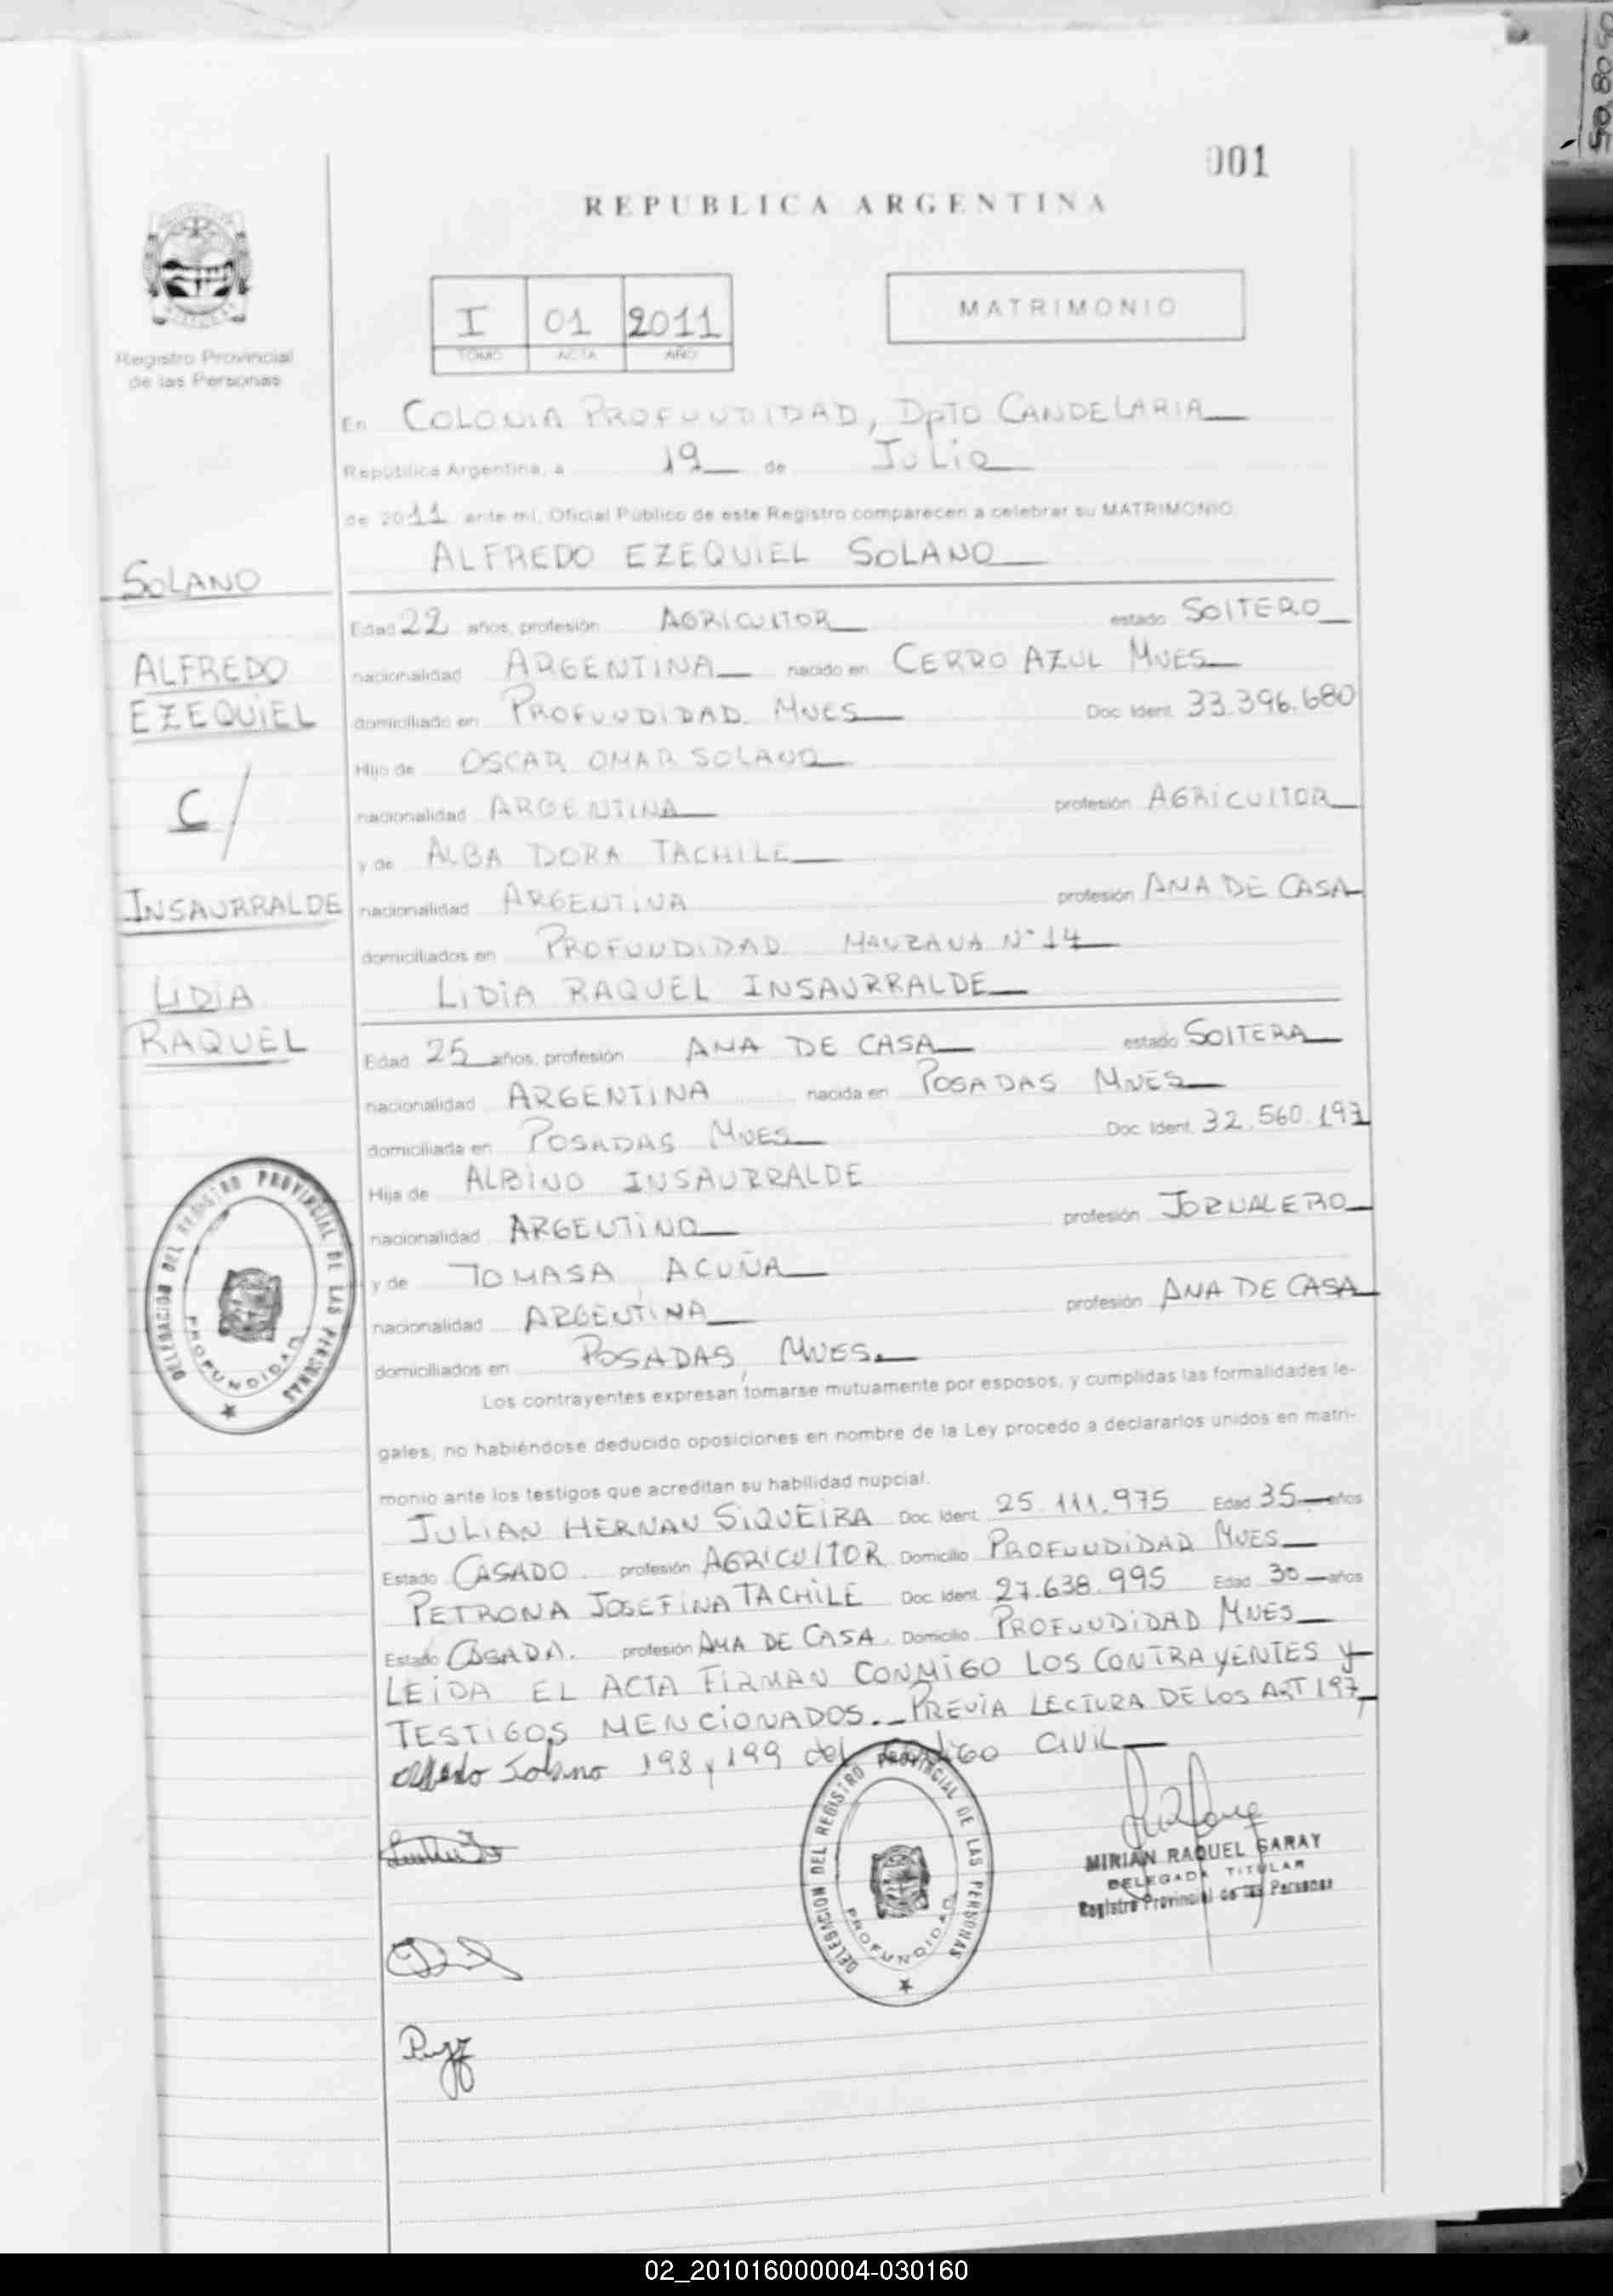 50.80 50
001
REPUBLICA ARGENTINA
I 01 2011
TOMO ACTA AÑO
MATRIMONIO
Registro Provincial
de las Personas
En COLONIA PROFUNDIDAD, DPTO CANDELARIA
República Argentina, a 19 de JULIO
de 2011 ante mí, Oficial Público de este Registro comparecen a celebrar su MATRIMONIO
ALFREDO EZEQUIEL SOLANO
SOLANO
Edad 22 años, profesión AGRICULTOR estado SOLTERO
ALFREDO
nacionalidad ARGENTINA nacido en CERRO AZUL MNES
EZEQUIEL
domiciliado en PROFUNDIDAD. MNES Doc. Ident. 33.396.680
Hijo de OSCAR OMAR SOLANO
C/
nacionalidad ARGENTINA profesión AGRICULTOR
y de ALBA DORA TACHILE
INSAURRALDE
nacionalidad ARGENTINA profesión AMA DE CASA
domiciliados en PROFUNDIDAD MANZANA N° 14
LIDIA
LIDIA RAQUEL INSAURRALDE
RAQUEL
Edad 25 años, profesión AMA DE CASA estado SOLTERA
nacionalidad ARGENTINA nacida en POSADAS MNES
domiciliada en POSADAS MNES Doc. Ident. 32.560.197
Hija de ALBINO INSAURRALDE
nacionalidad ARGENTINO profesión JORNALERO
y de TOMASA ACUÑA
nacionalidad ARGENTINA profesión AMA DE CASA
domiciliados en POSADAS, MNES.
DELEGACION DEL REGISTRO PROVINCIAL DE LAS PERSONAS
PROFUNDIDAD
Los contrayentes expresan tomarse mutuamente por esposos, y cumplidas las formalidades le-
gales, no habiéndose deducido oposiciones en nombre de la Ley procedo a declararlos unidos en matri-
monio ante los testigos que acreditan su habilidad nupcial.
JULIAN HERNAN SIQUEIRA Doc. Ident. 25.111.975 Edad 35 años
Estado CASADO. profesión AGRICULTOR Domicilio PROFUNDIDAD MNES
PETRONA JOSEFINA TACHILE Doc. Ident. 27.638.995 Edad 30 años
Estado CASADA. profesión AMA DE CASA. Domicilio PROFUNDIDAD MNES
LEIDA EL ACTA FIRMAN CONMIGO LOS CONTRAYENTES Y
TESTIGOS MENCIONADOS._ PREVIA LECTURA DE LOS ART 197,
198 y 199 del Código CIVIL
Solano
DELEGACION DEL REGISTRO PROVINCIAL DE LAS PERSONAS
PROFUNDIDAD
MIRIAN RAQUEL GARAY
DELEGADA TITULAR
Registro Provincial de las Personas
02_201016000004-030160